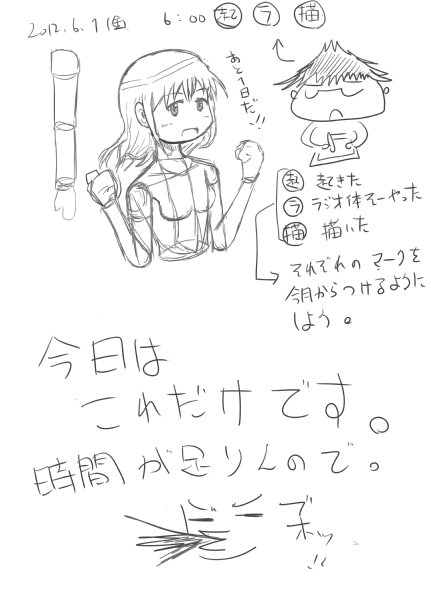 2012.6.1 金 6:00 起 ラ 描
あと1日だ!!
起 起きた
ラ ラジオ体そーやった
描 描いた
それぞれの マークを
今月からつけるように
しよう。
今日は
これだけです。
時間が足りんので。
で
ホッ
!!